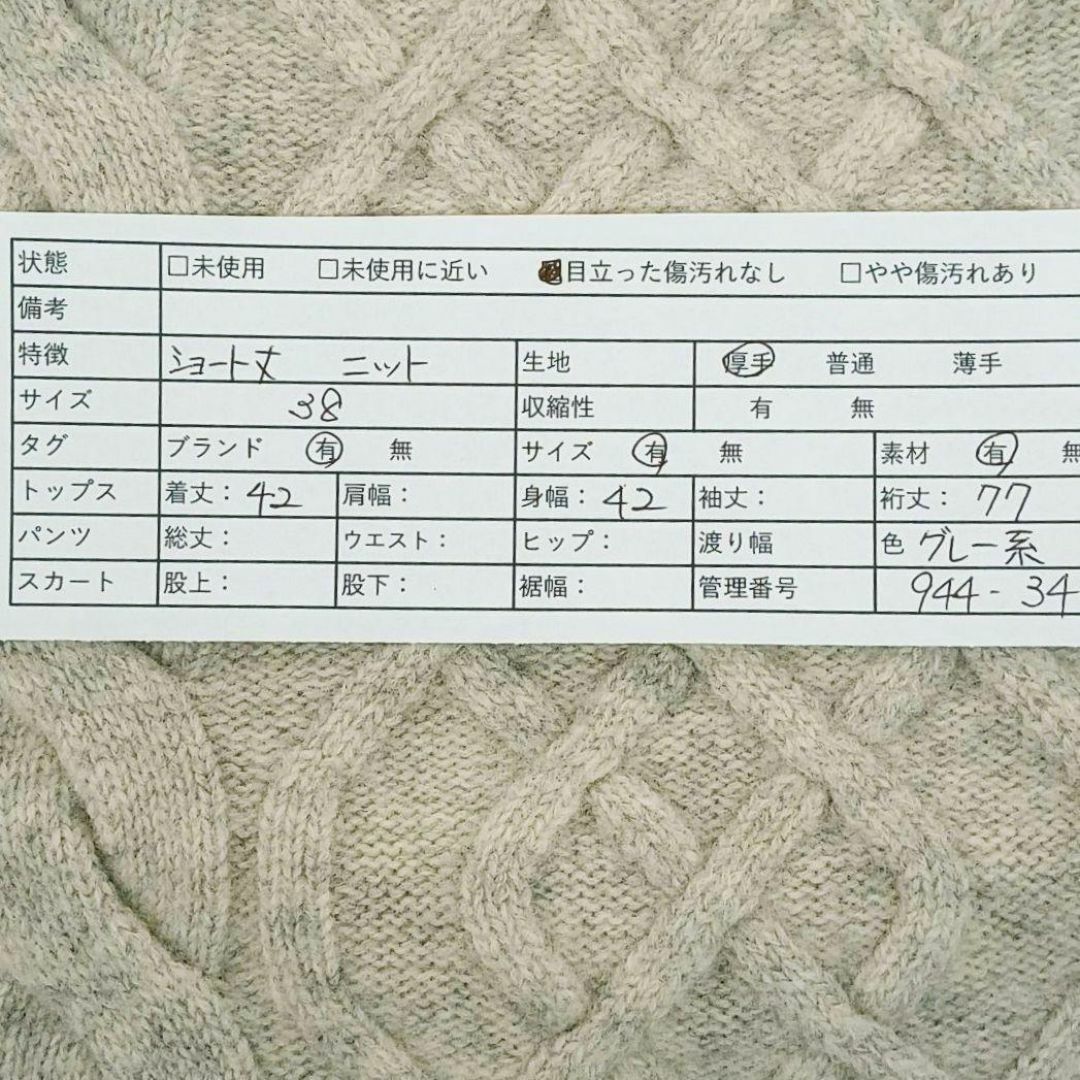 状態 □未使用 □未使用に近い ■目立った傷汚れなし □やや傷汚れあり
備考
特徴 ショート丈 ニット 生地 厚手 普通 薄手
サイズ 38 収縮性 有 無
タグ ブランド 有 無 サイズ 有 無 素材 有 無
トップス 着丈：42 肩幅： 身幅：42 袖丈： 裄丈：77
パンツ 総丈： ウエスト： ヒップ： 渡り幅 色 グレー系
スカート 股上： 股下： 裾幅： 管理番号 944-34